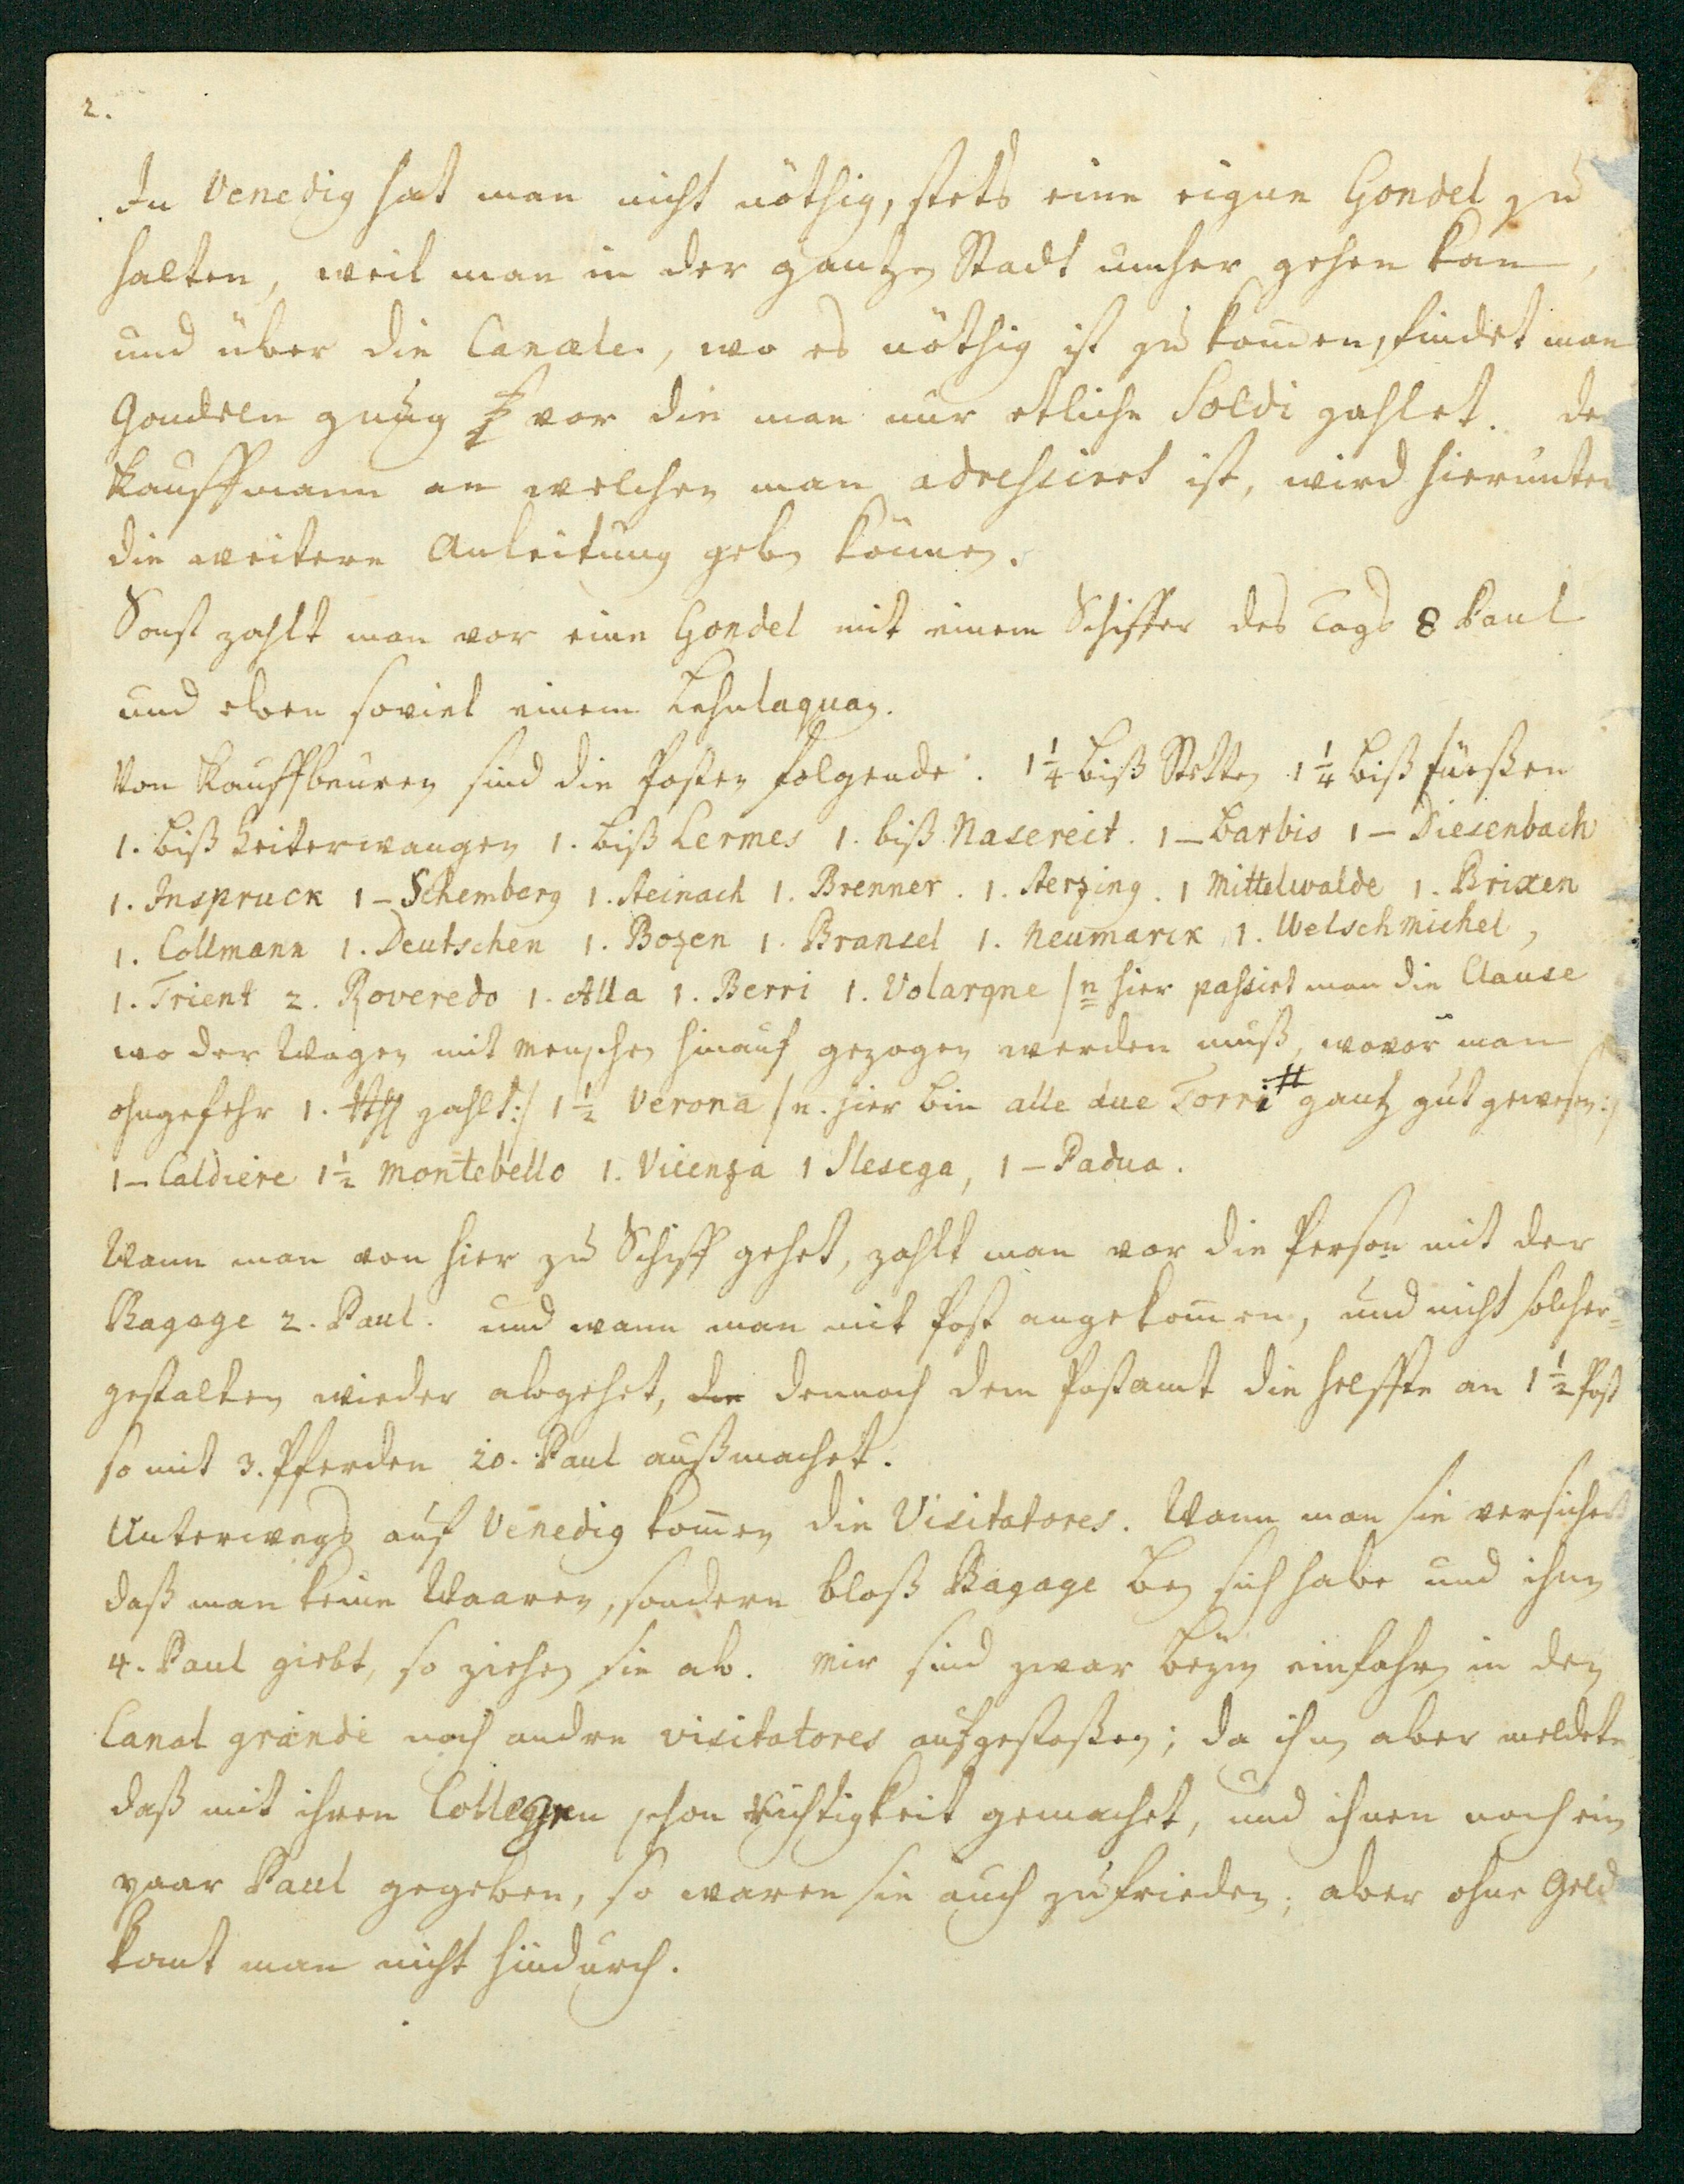 2.
In Venedig hat man nicht nöthig, stets eine eigne Gondel zu
halten, weil man in der gantzen Stadt umher gehen kan,
und über die Canæle, wo es nöthig ist zu kom̅en, findet man
Gondeln gnug vor die man nur etliche Soldi zahlet. De
Kauffmann an welchen man adressiret ist, wird hierunter
die weitere Anleitung geben können.
Sonst zahlt man vor eine Gondel mit einem Schiffer des Tags 8 Paul
und eben soviel einem Lehnlaquay.
Von Kauffbeuren sind die Posten folgende. 1¼ biß Stetten 1¼ biß Füeßen
1. biß Heiterwangen 1. biß Lermes 1. biß Nasereit. 1 – Barbis 1 – Diesenbach
1. Inspruck 1 – Schemberg 1. Steinach 1. Brenner. 1. Sterzing. 1 Mittelwalde 1. Brixen
1. Collmann 1. Deutschen 1. Bozen 1. Bransel 1. Neumarck 1. Welschmichel,
1. Trient 2. Roveredo 1. Alla 1. Berri 1. Volargne /n hier passirt man die Clause
wo der Wagen mit Menschen hinauf gezogen werden muß, wovor man
ohngefehr 1. zahlt:/ 1½ Verona /n. hier bin alle due Torri # gantz gut gewesen:/
1 – Caldiere 1½ Montebello 1. Vicenza 1 Slesega, 1 – Padua.
Wann man von hier zu Schiff gehet, zahlt man vor die Person mit der
Bagage 2. Paul. und wann man mit Post angekom̅en, und nicht solcher=
gestalten wieder abgehet, die dennoch dem Postamt die helffte an 1½ Post
so mit 3. Pferden 20. Paul außmachet.
Unterwegs auf Venedig kom̅en die Visitatores. Wann man sie versichert
daß man keine Waaren, sondern bloß Bagage bey sich habe und ihnen
4. Paul giebt, so ziehen sie ab. Mir sind zwar beym einfahren in den
Canal grande noch andre visitatores aufgestoßen; da ihnen aber meldete
daß mit ihren Collegen schon Richtigkeit gemachet, und ihnen noch ein
paar Paul gegeben, so waren sie auch zufrieden; aber ohne Geld
komt man nicht hindurch.